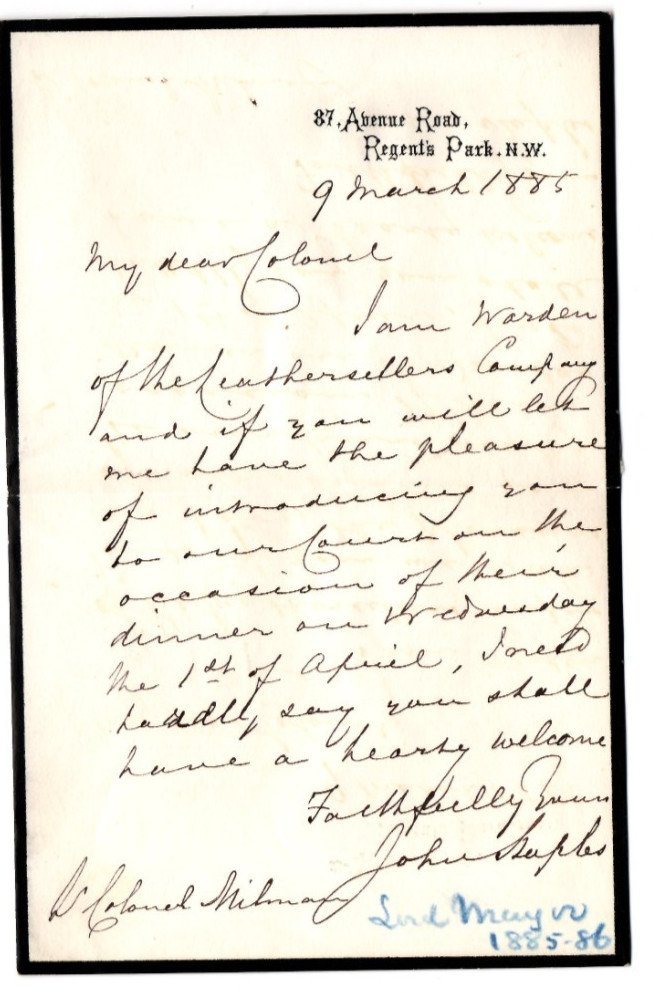 37, Avenue Road,
Regent's Park. N.W.
9 March 1885
My dear Colonel
I am Warden
of the Leathersellers Company
and if you will let
me have the pleasure
of introducing you
to our Court on the
occasion of their
dinner on Wednesday
the 1st of April, I need
hardly say you shall
have a hearty welcome
Faithfully Yours
John Staples
Colonel Milman
Lord Mayor
1885-86